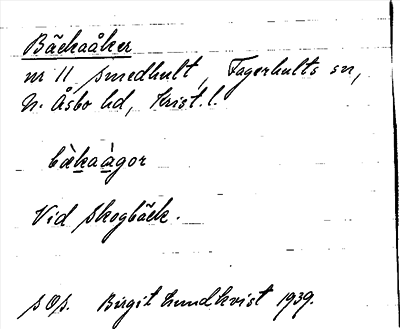 Bäckaåker
nr 11 Smedhult, Fagerhults sn,
N. Åsbo hd, Krist. l.
bàkaàgor
Vid Skogbäck.
Birgit Lundkvist 1939.